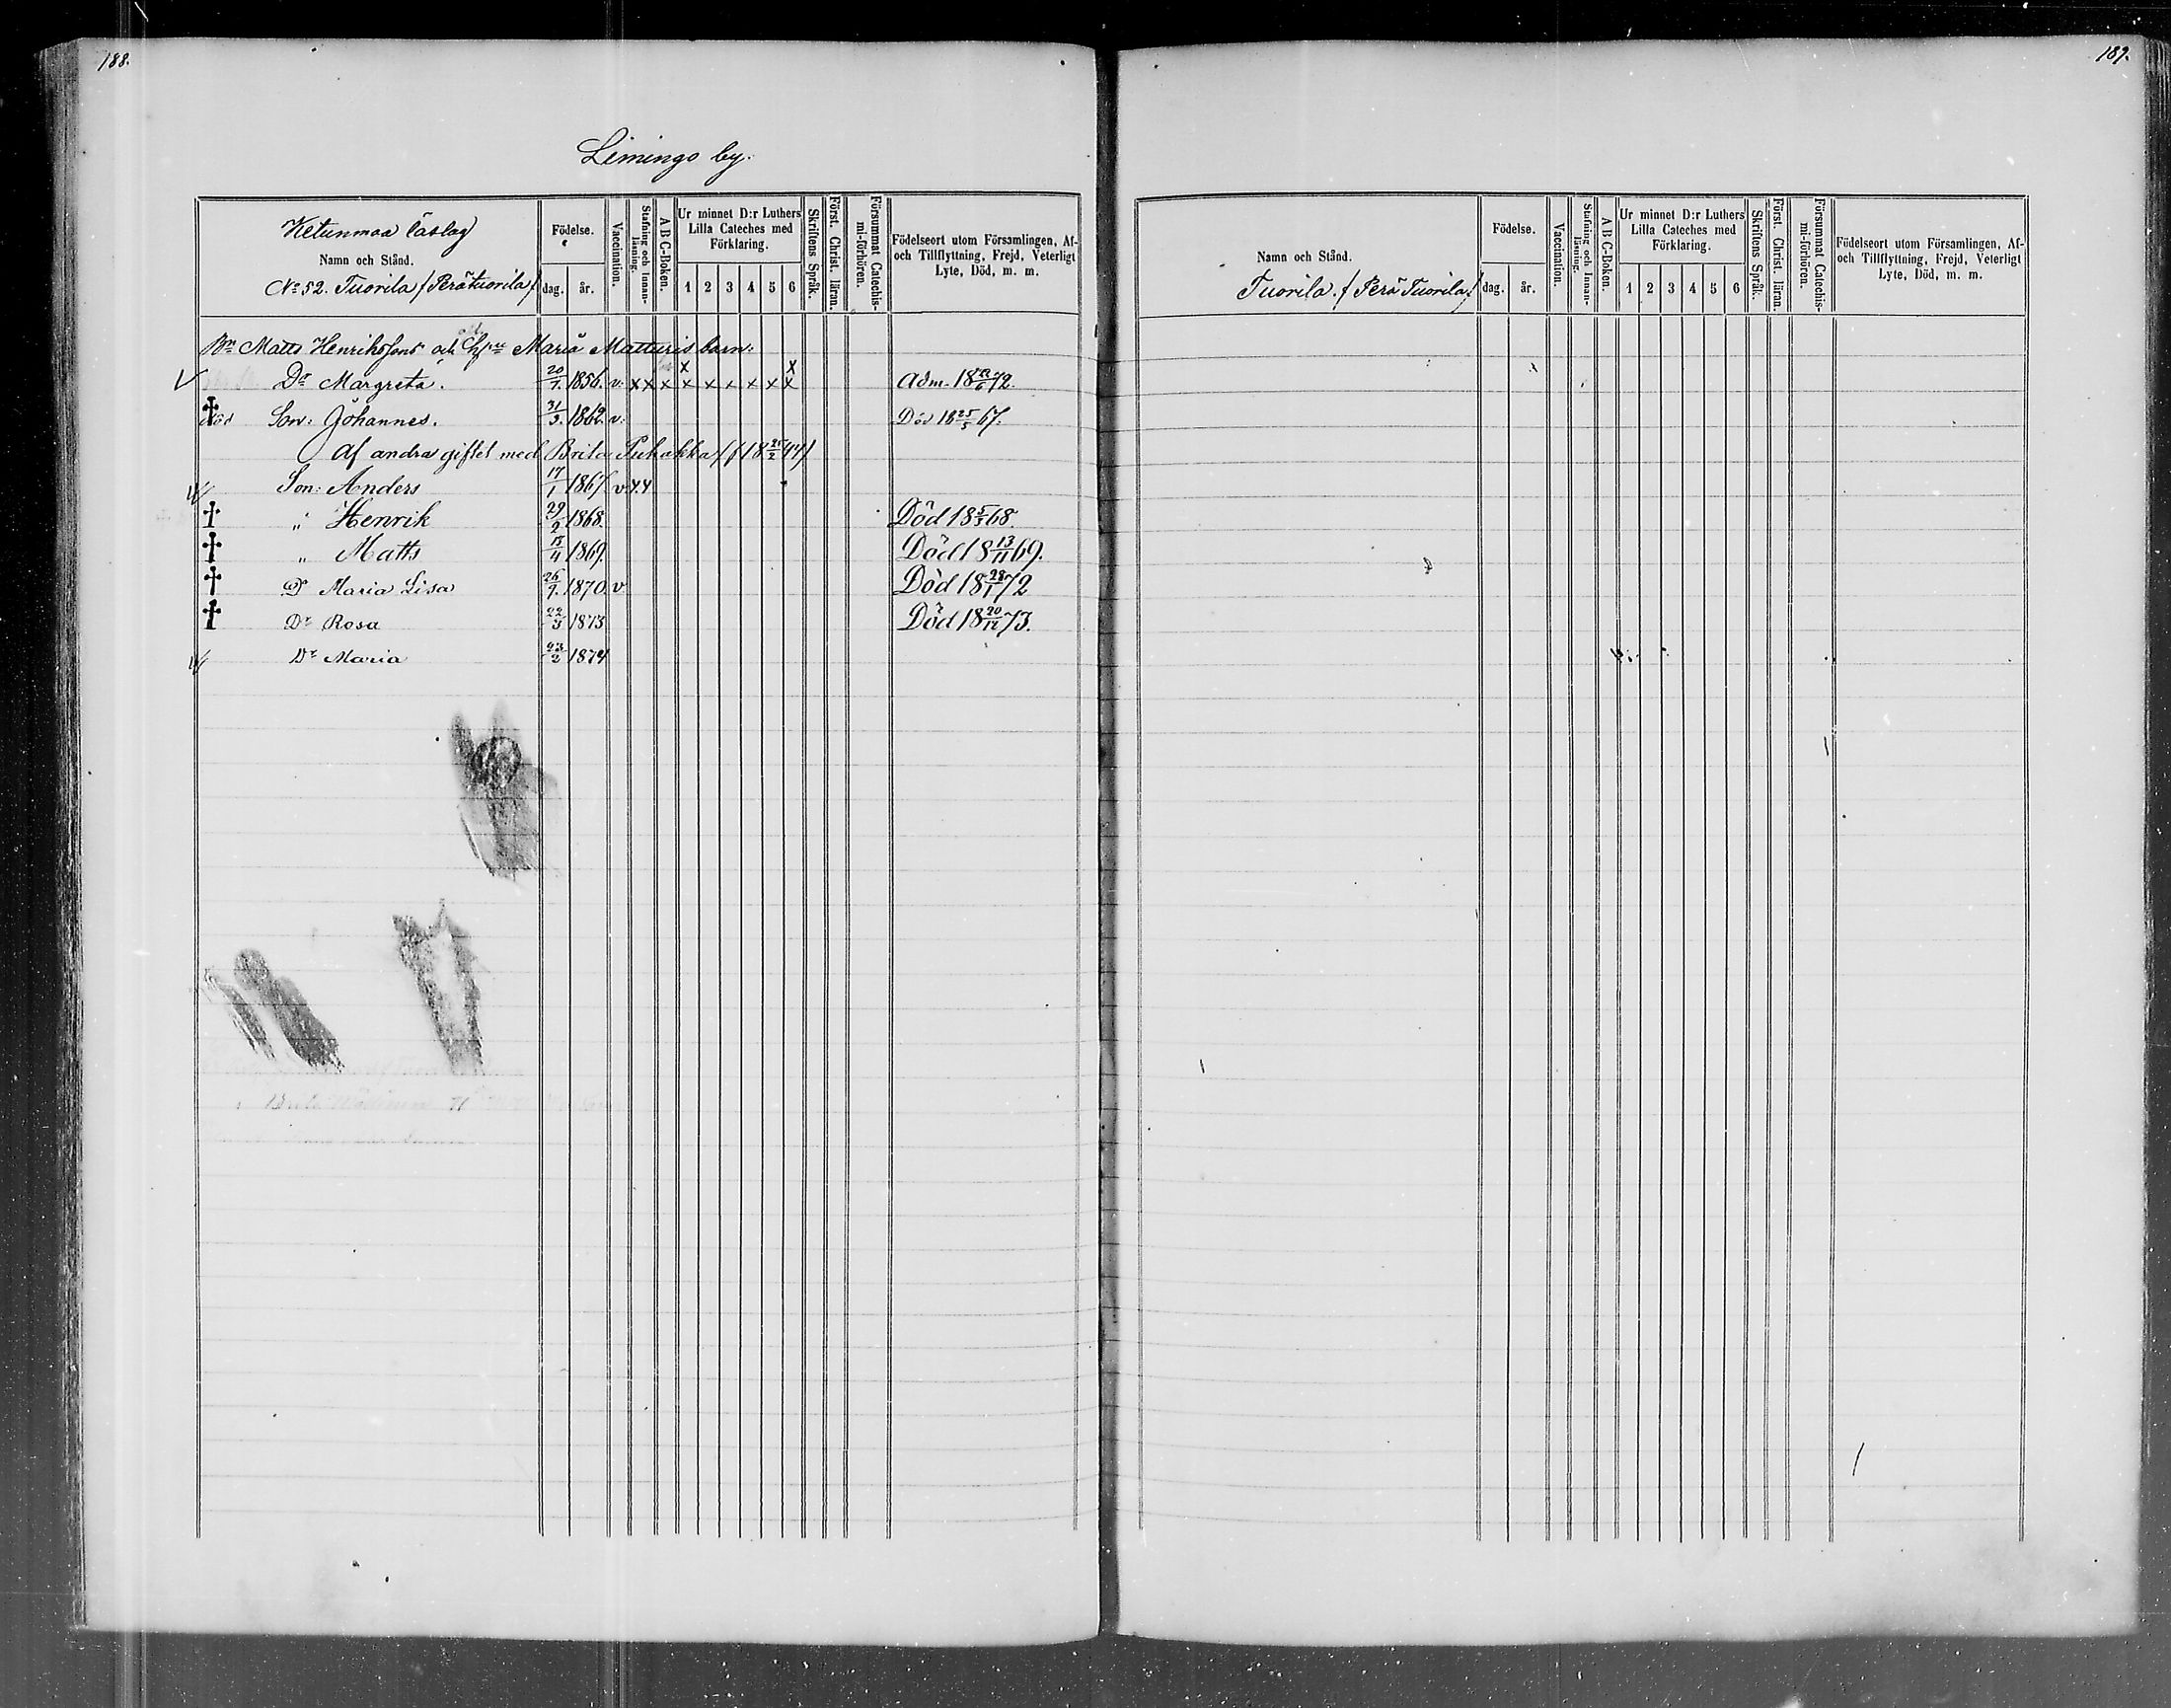 188.
Limingo by.
Ketunmaa läslag
Namn och Stånd.
No 52. Tuorila / Perätuorila /
Födelse.
dag. år.
Vaccination.
Stafning och Innanläsning.
A B C-Boken.
Ur minnet D:r Luthers Lilla Cateches med Förklaring.
1 2 3 4 5 6
Skriftens Språk.
Först. Christ. läran.
Försummat Catechismi-förhören.
Födelseort utom Församlingen, Af- och Tillflyttning, Frejd, Veterligt Lyte, Död, m. m.
Bn Matts Henrikssons och Maria Matturis barn:
x x
Dr Margreta. 20/7. 1856. v. x x x x x x x x x Adm. 18 72.
död Son: Johannes. 31/3. 1862. v. Död 18 25/5 67.
Af andra giftet med Brita Puhakka / f 18 /2 44 /
Son: Anders 17/1 1867. v. x x
" Henrik 29/2 1868. Död 18 5/3 68.
" Matts /4 1869. Död 18 13/11 69.
Dr Maria Lisa 26/7. 1870. v Död 18 28/1 72
Dr Rosa 22/3 1873 Död 18 20/12 73.
Dr Maria 23/2 1874
189.
Namn och Stånd.
Tuorila. / Perä Tuorila. /
Födelse.
dag. år.
Vaccination.
Stafning och Innanläsning.
A B C-Boken.
Ur minnet D:r Luthers Lilla Cateches med Förklaring.
1 2 3 4 5 6
Skriftens Språk.
Först. Christ. läran.
Försummat Catechismi-förhören.
Födelseort utom Församlingen, Af- och Tillflyttning, Frejd, Veterligt Lyte, Död, m. m.